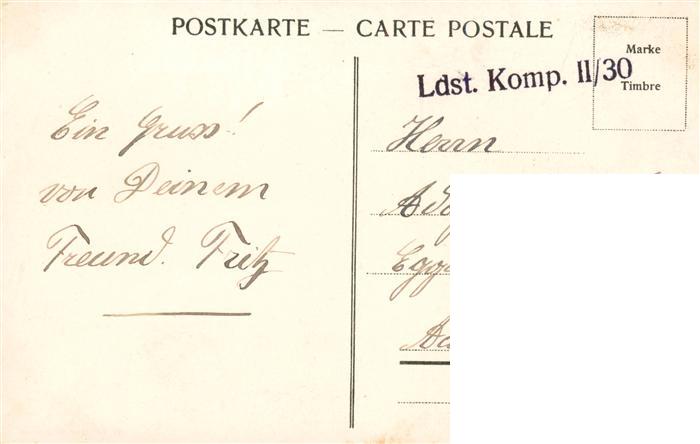 POSTKARTE — CARTE POSTALE
Marke
Timbre
Ldst. Komp. II/30
Ein Gruss!
von Deinem
Freund. Fritz
Herrn